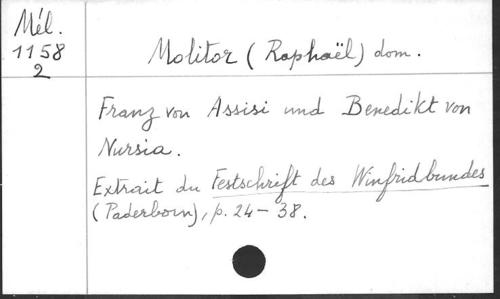 Mél.
1158
2
Molitor (Raphaël) dom.
Franz von Assisi und Benedikt von
Nursia.
Extrait du Festschrift des Winfridbundes
(Paderborn), p. 24-38.